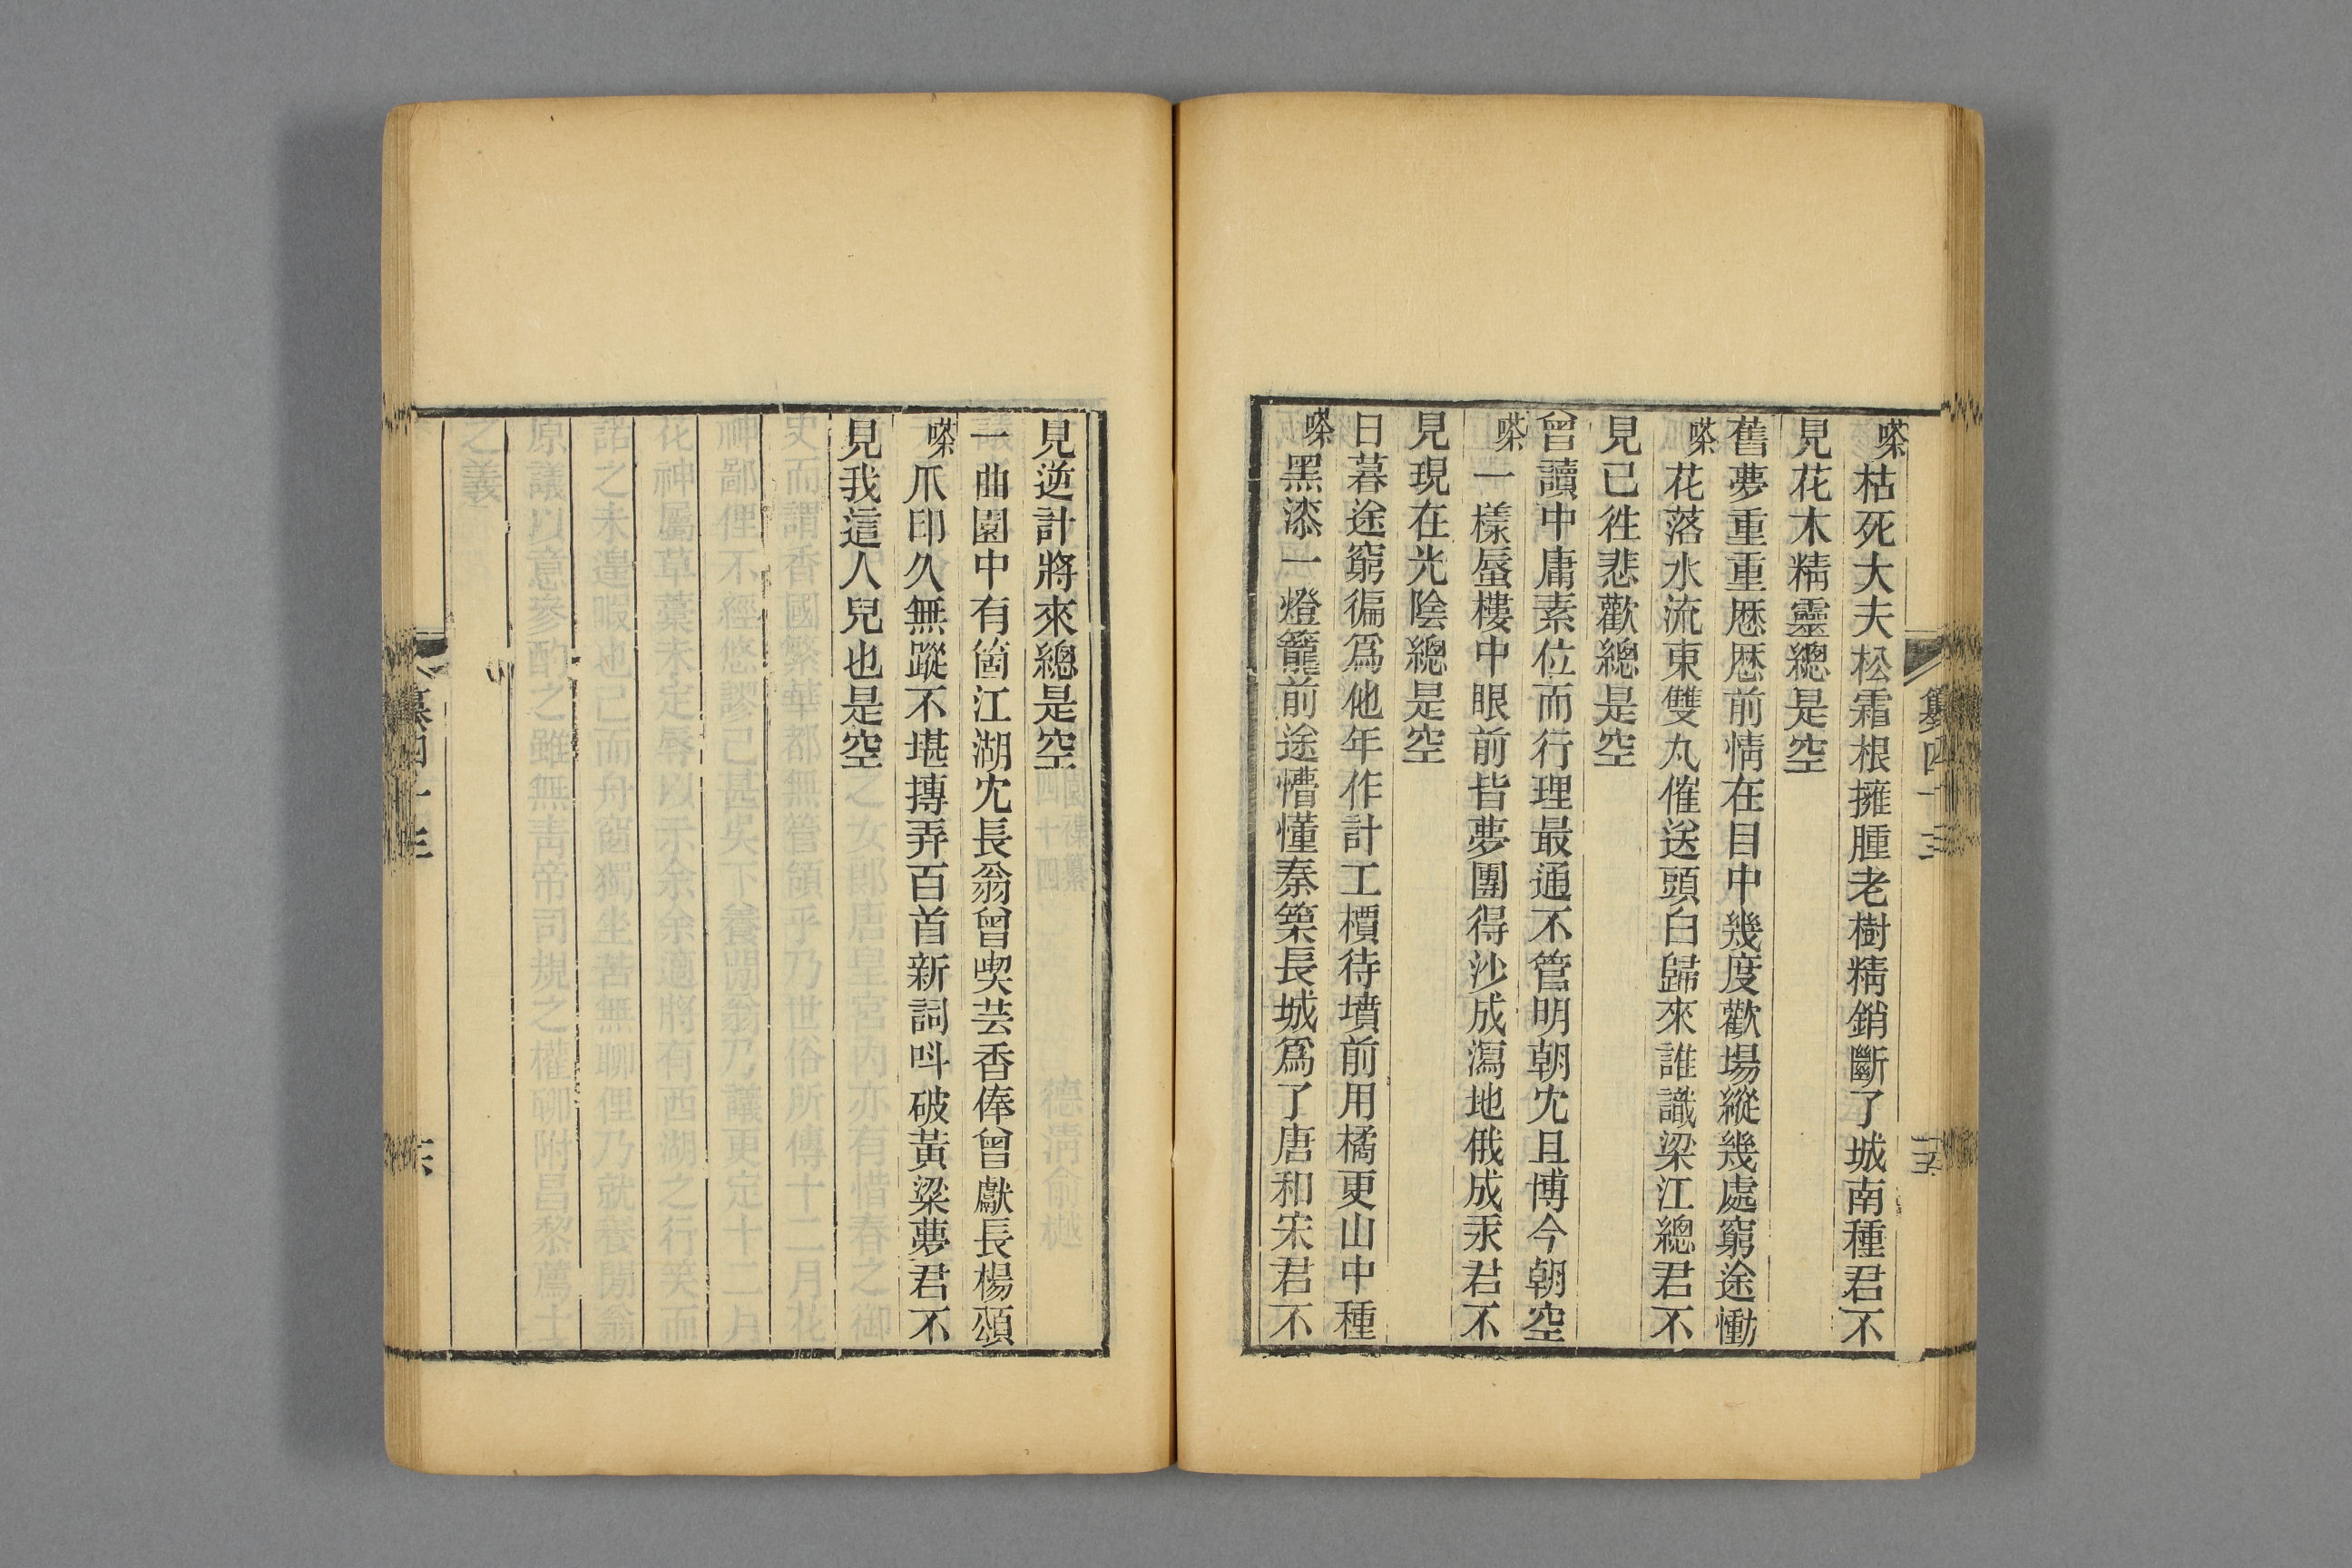 嗏枯死大夫松霜根擁腫老樹精銷斷了城南種君不
見花木精靈總是空
舊夢重重歷歷前情在目中幾度歡場縱幾處窮途慟
嗏花落水流東雙丸催送頭白歸來誰識梁江總君不
見已往悲歡總是空
曾讀中庸素位而行理最通不管明朝冘且博今朝空
嗏一樣蜃樓中眼前皆夢團得沙成瀉地俄成汞君不
見現在光陰總是空
日暮途窮徧爲他年作計工檟待墳前用橘更山中種
嗏黑漆一燈籠前途懵懂秦築長城爲了唐和宋君不
纂四十三
見逆計將來總是空
一曲園中有箇江湖冘長翁曾喫芸香俸曾獻長楊頌
嗏爪印久無蹤不堪摶弄百首新詞呌破黃粱夢君不
見我這人兒也是空
纂四十三